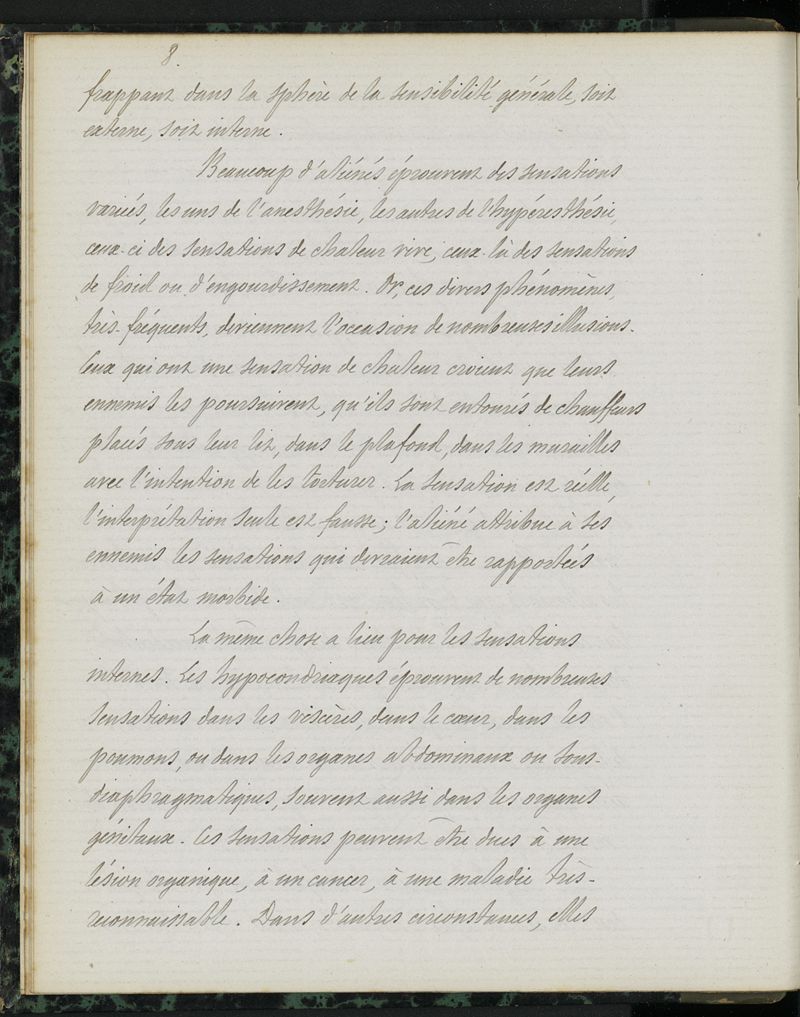 8.
frappant dans la sphère de la sensibilité générale, soit
externe, soit interne.
Beaucoup d'aliénés éprouvent des sensations
variées, les uns de l'anesthésie, les autres de l'hypéresthésie,
ceux-ci des sensations de chaleur vive, ceux-là des sensations
de froid ou d'engourdissement. Or, ces divers phénomènes,
très-fréquents, deviennent l'occasion de nombreuses illusions.
Ceux qui ont une sensation de chaleur croient que leurs
ennemis les poursuivent, qu'ils sont entourés de chauffeurs
placés sous leur lit, dans le plafond, dans les murailles
avec l'intention de les torturer. La sensation est réelle,
l'interprétation seule est fausse; l'aliéné attribue à ses
ennemis les sensations qui devraient être rapportées
à un état morbide.
La même chose a lieu pour les sensations
internes. Les hypocondriaques éprouvent de nombreuses
sensations dans les viscères, dans le cœur, dans les
poumons, ou dans les organes abdominaux ou sous-
diaphragmatiques, souvent aussi dans les organes
génitaux. Ces sensations peuvent être dues à une
lésion organique, à un cancer, à une maladie très-
reconnaissable. Dans d'autres circonstances, elles